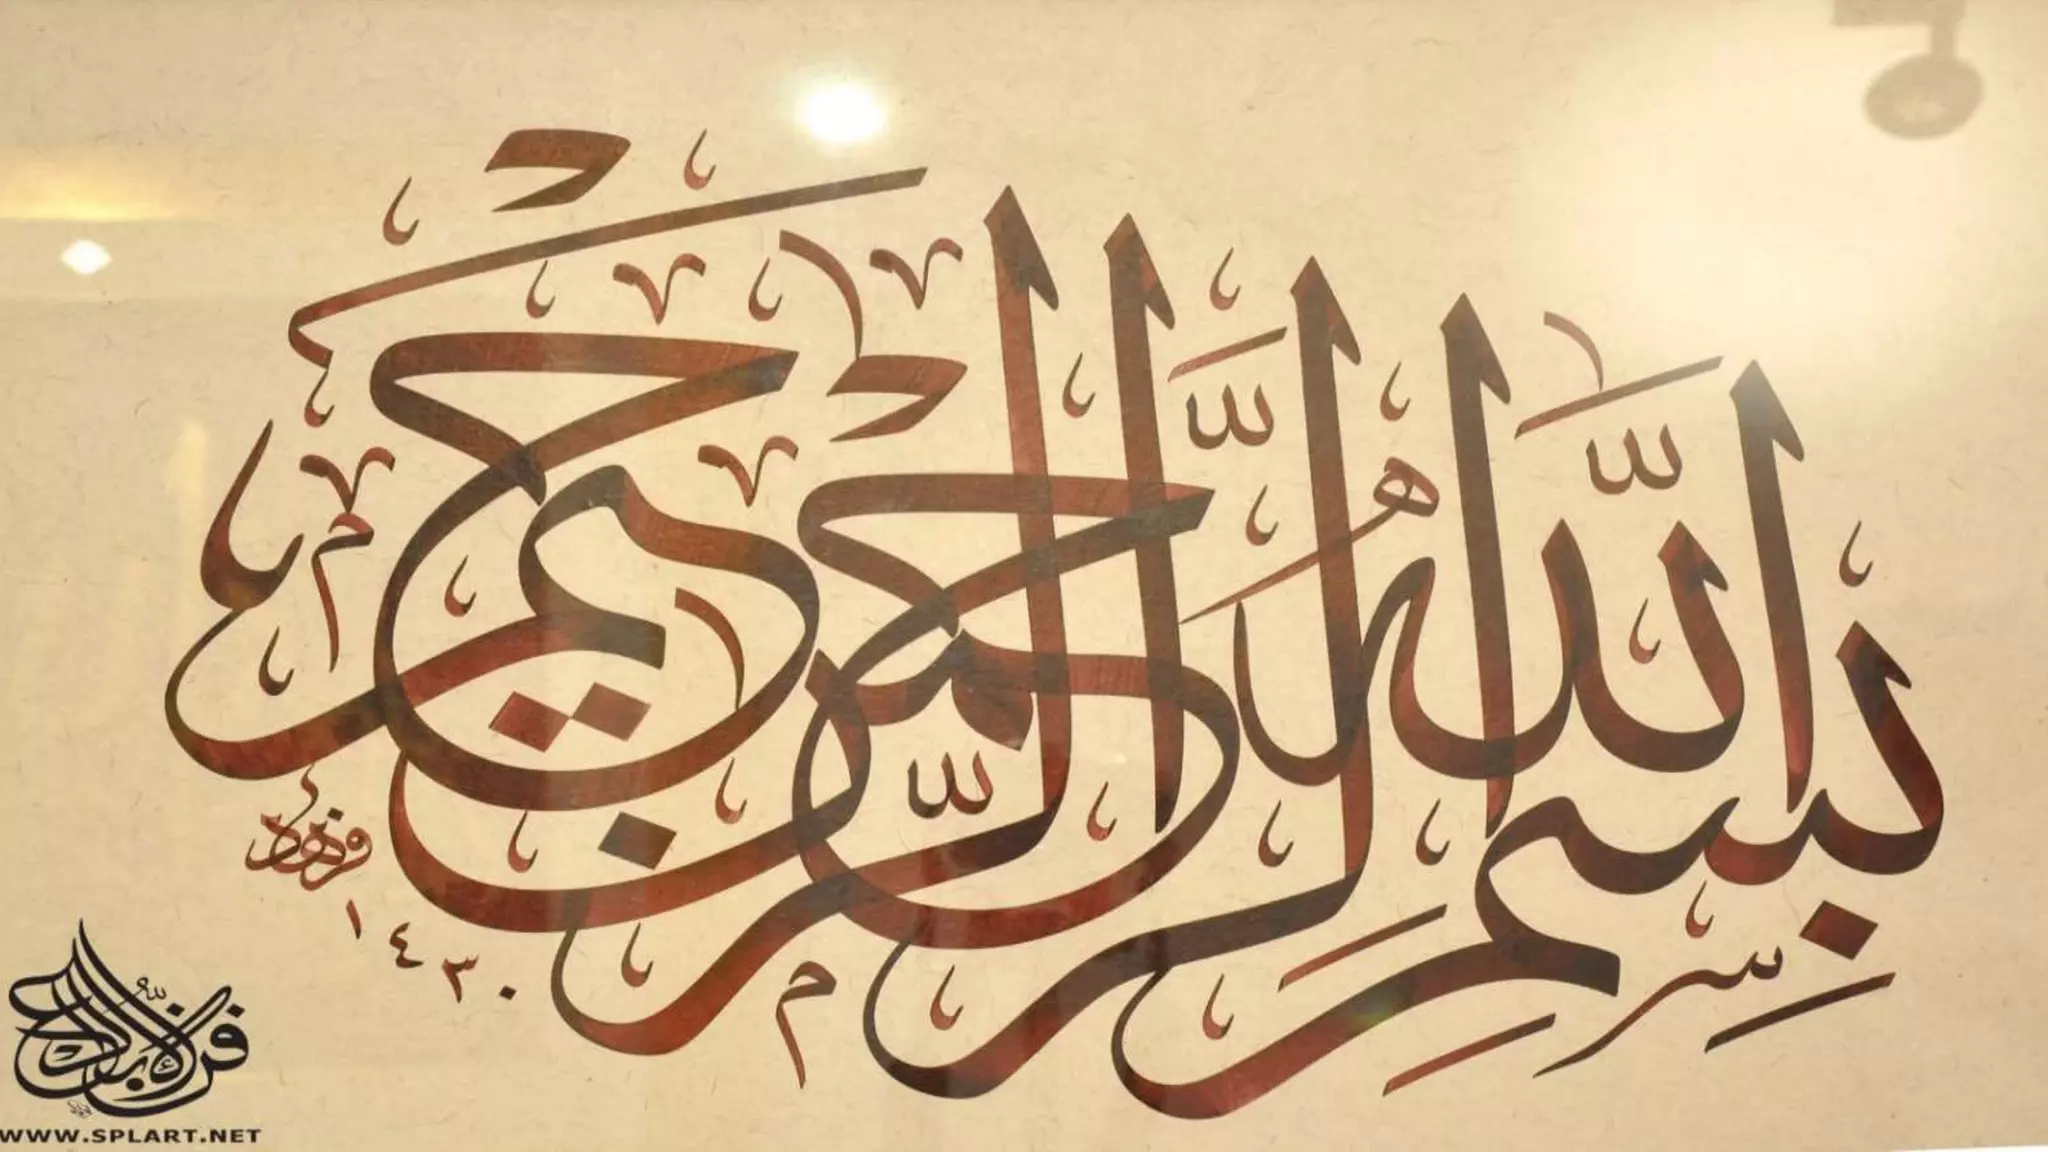 بِسْمِ اللَّهِ الرَّحْمَٰنِ الرَّحِيمِ
فرهاد
١٤٣٠
WWW.SPLART.NET